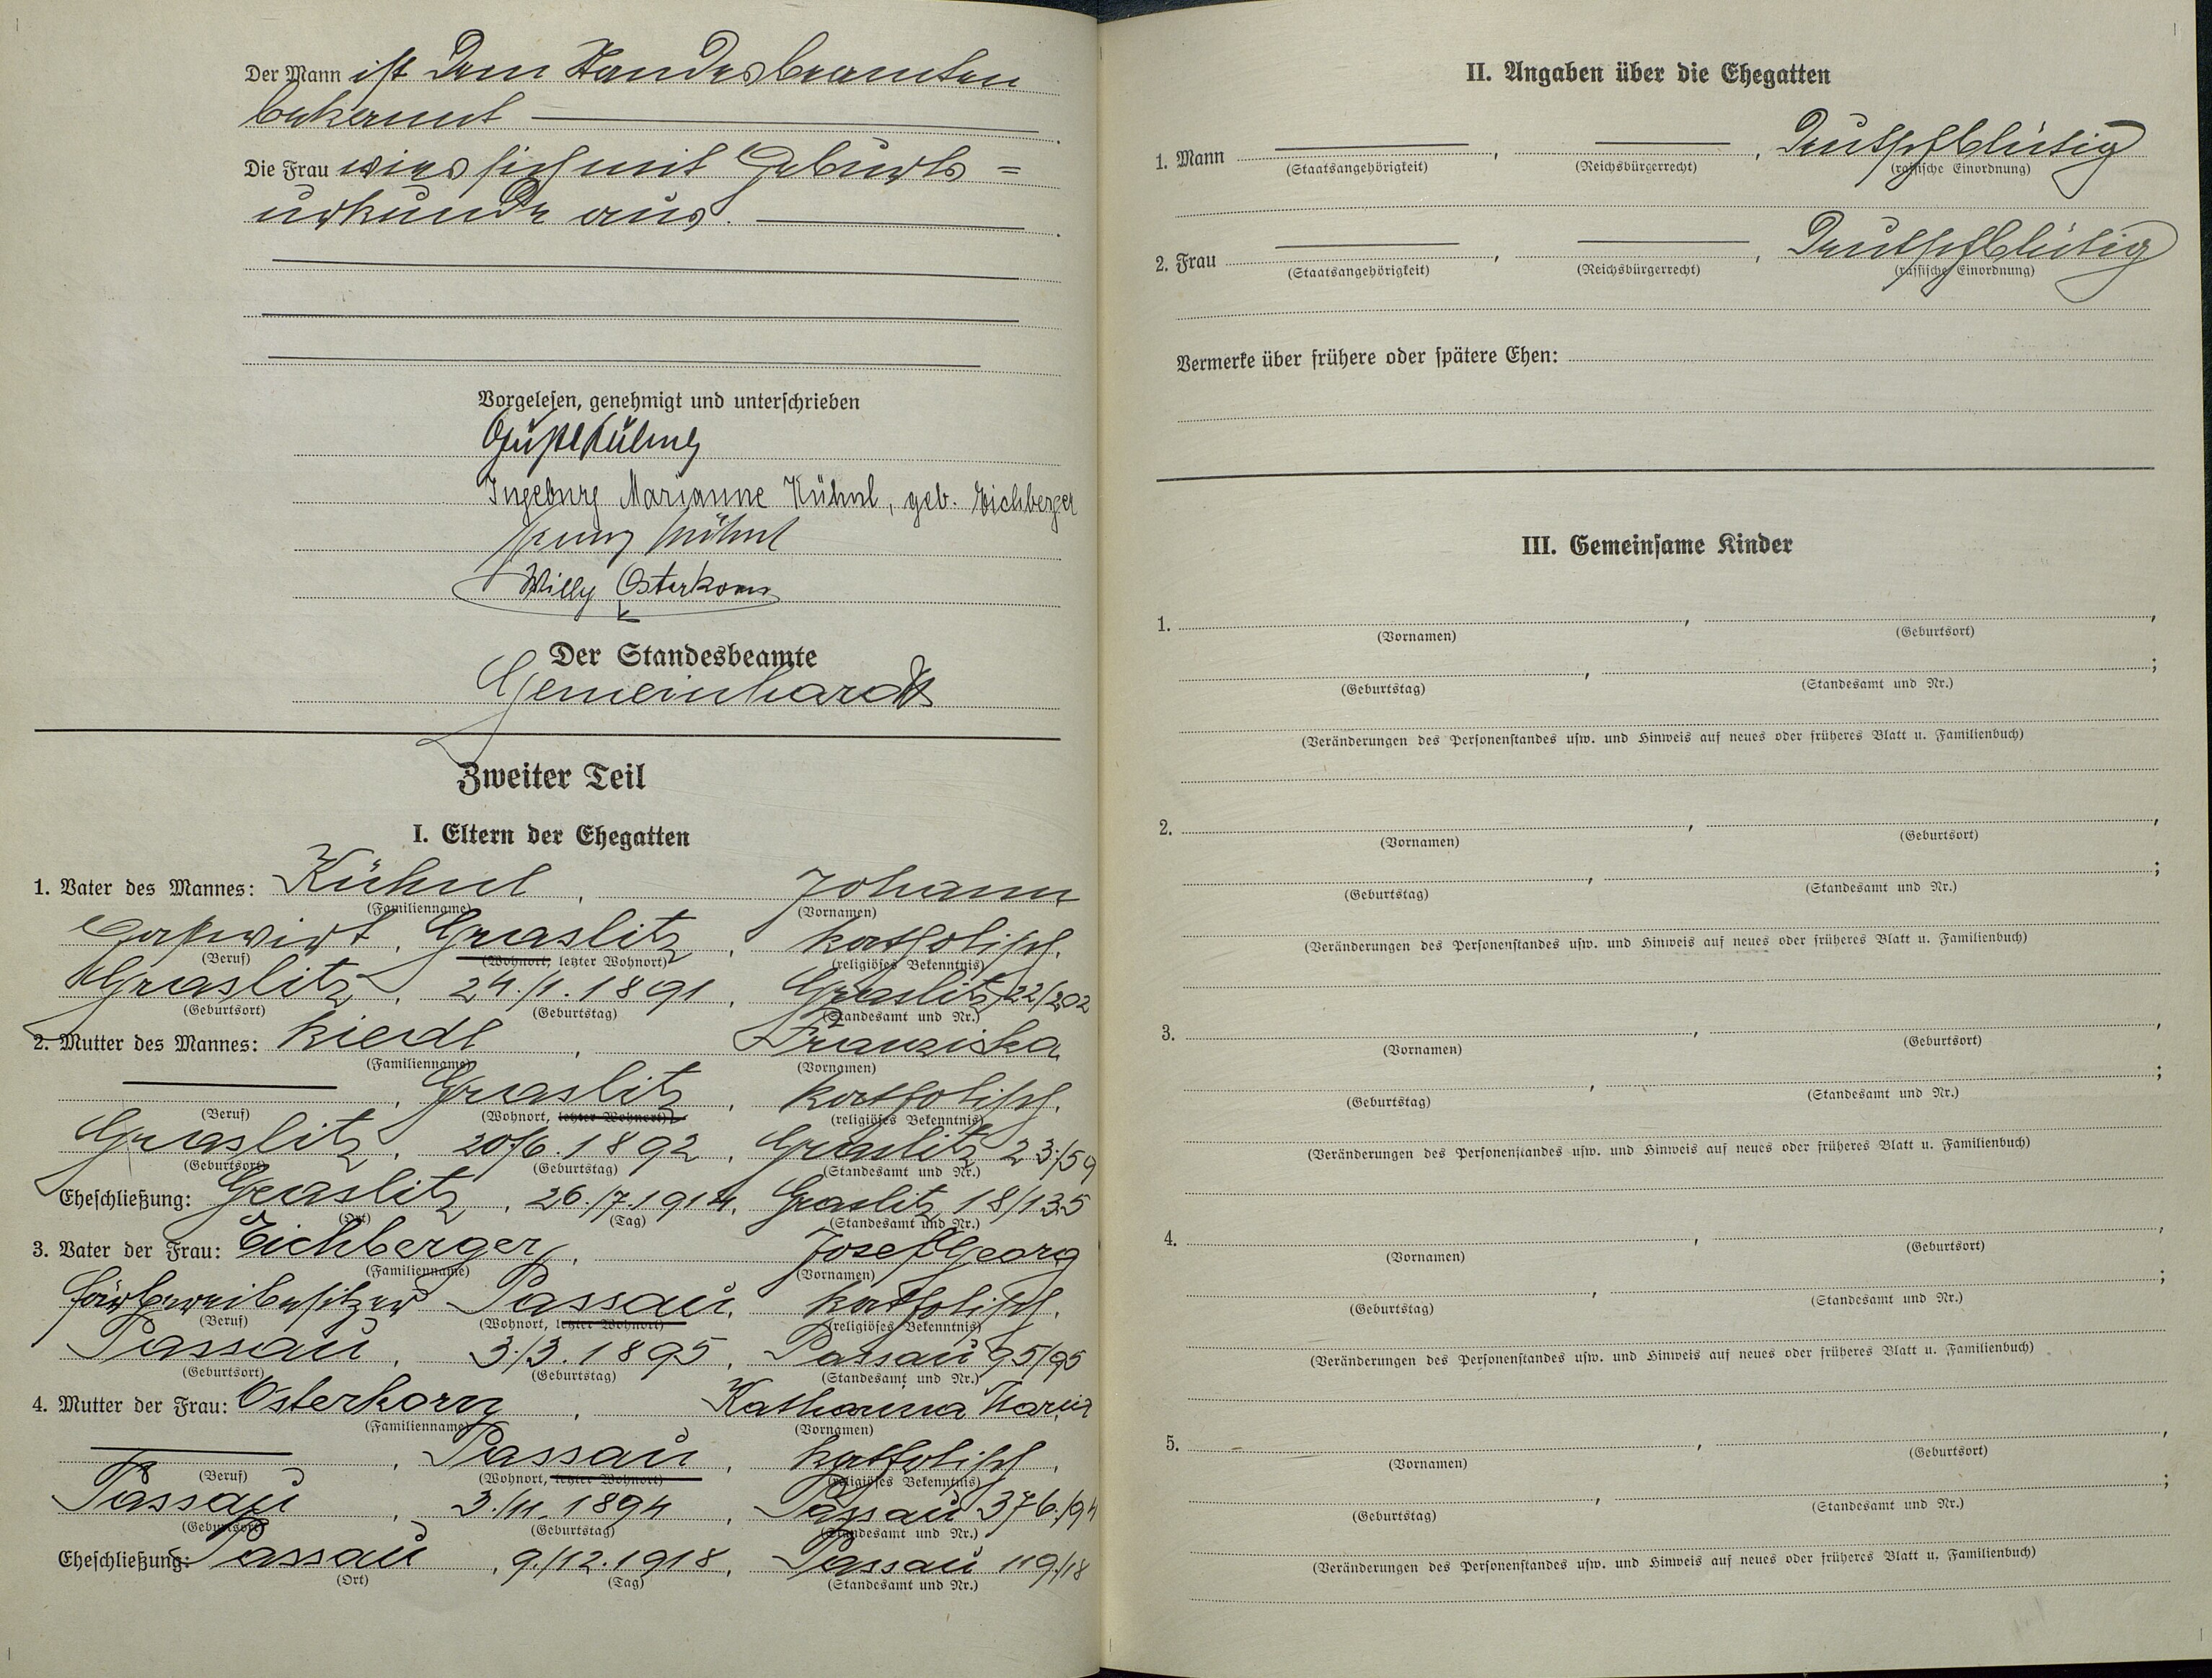 Der Mann ist dem Standesbeamten
bekannt
Die Frau wies sich mit Geburts=
urkunde aus.
Vorgelesen, genehmigt und unterschrieben
Ingeburg Marianne Kühnl, geb. Eichberger
Kühnl
Willy Osterkorn
Der Standesbeamte
Gemeinhardt
Zweiter Teil
I. Eltern der Ehegatten
1. Vater des Mannes: Kühnl, Johann
(Familienname) (Vornamen)
Gastwirt, Graslitz, katholisch.
(Beruf) (Wohnort, letzter Wohnort) (religiöses Bekenntnis)
Graslitz, 24./1. 1891, Graslitz 22/202
(Geburtsort) (Geburtstag) (Standesamt und Nr.)
2. Mutter des Mannes: Riedl, Franziska
(Familienname) (Vornamen)
, Graslitz, katholisch.
(Beruf) (Wohnort, letzter Wohnort) (religiöses Bekenntnis)
Graslitz, 20/6. 1892, Graslitz 23/59
(Geburtsort) (Geburtstag) (Standesamt und Nr.)
Eheschließung: Graslitz, 26./7. 1914, Graslitz 18/135
(Ort) (Tag) (Standesamt und Nr.)
3. Vater der Frau: Eichberger, Josef Georg
(Familienname) (Vornamen)
Färbereibesitzer Passau, katholisch.
(Beruf) (Wohnort, letzter Wohnort) (religiöses Bekenntnis)
Passau, 3./3. 1895, Passau 95/95
(Geburtsort) (Geburtstag) (Standesamt und Nr.)
4. Mutter der Frau: Osterkorn, Katharina Maria
(Familienname) (Vornamen)
, Passau, katholisch.
(Beruf) (Wohnort, letzter Wohnort) (religiöses Bekenntnis)
Passau, 3./11. 1894, Passau 376/94
(Geburtsort) (Geburtstag) (Standesamt und Nr.)
Eheschließung: Passau, 9./12. 1918, Passau 119/18
(Ort) (Tag) (Standesamt und Nr.)
II. Angaben über die Ehegatten
1. Mann , , Deutschblütig
(Staatsangehörigkeit) (Reichsbürgerrecht) (rassische Einordnung)
2. Frau , , Deutschblütig
(Staatsangehörigkeit) (Reichsbürgerrecht) (rassische Einordnung)
Vermerke über frühere oder spätere Ehen:
III. Gemeinsame Kinder
1. , ,
(Vornamen) (Geburtsort)
, ;
(Geburtstag) (Standesamt und Nr.)
(Veränderungen des Personenstandes usw. und Hinweis auf neues oder früheres Blatt u. Familienbuch)
2. , ,
(Vornamen) (Geburtsort)
, ;
(Geburtstag) (Standesamt und Nr.)
(Veränderungen des Personenstandes usw. und Hinweis auf neues oder früheres Blatt u. Familienbuch)
3. , ,
(Vornamen) (Geburtsort)
, ;
(Geburtstag) (Standesamt und Nr.)
(Veränderungen des Personenstandes usw. und Hinweis auf neues oder früheres Blatt u. Familienbuch)
4. , ,
(Vornamen) (Geburtsort)
, ;
(Geburtstag) (Standesamt und Nr.)
(Veränderungen des Personenstandes usw. und Hinweis auf neues oder früheres Blatt u. Familienbuch)
5. , ,
(Vornamen) (Geburtsort)
, ;
(Geburtstag) (Standesamt und Nr.)
(Veränderungen des Personenstandes usw. und Hinweis auf neues oder früheres Blatt u. Familienbuch)